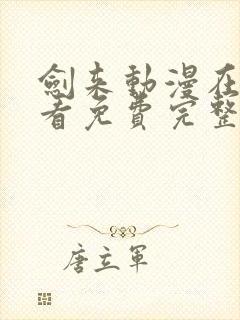 劍来動漫在
看免費完整
唐立軍